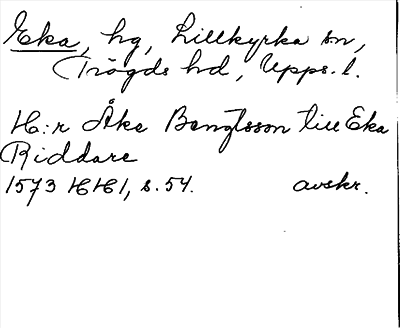 Eka, hg, Lillkyrka sn,
Trögds hd, Upps. l.
H:r Åke Bengtsson till Eka
Riddare
1573 HH1, s. 54. avskr.